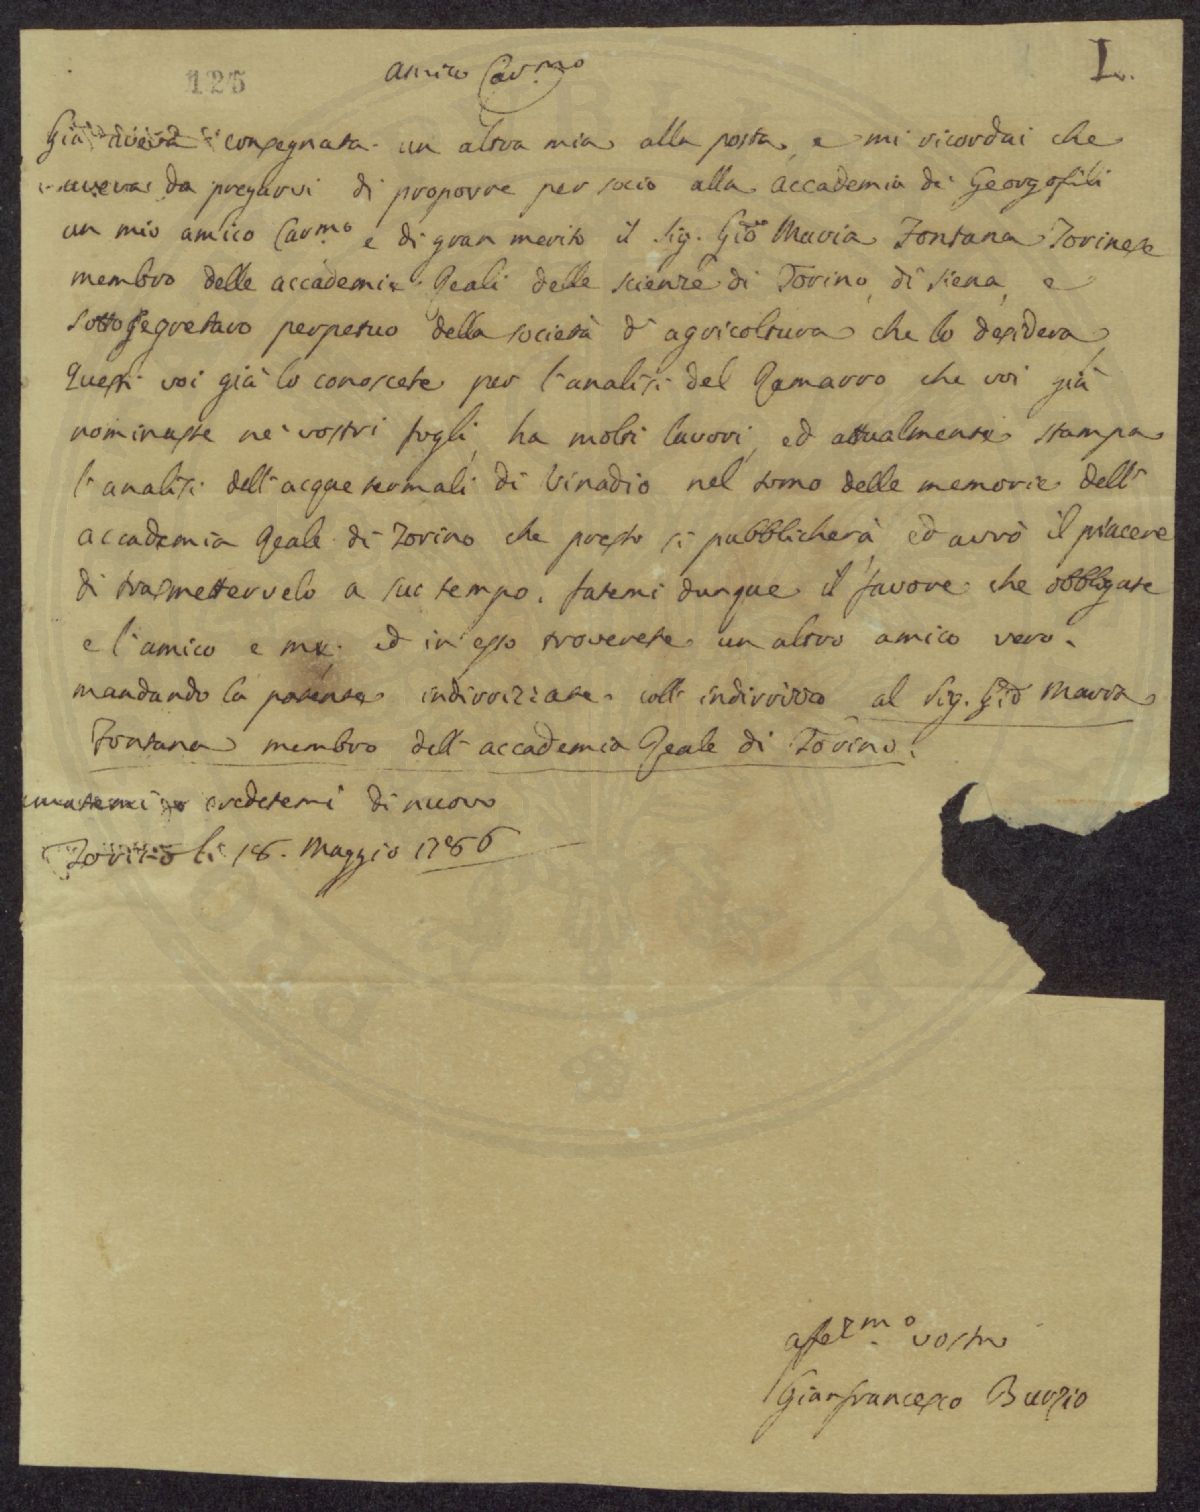 125
L.
Amico Car.mo
Già aveva consegnata un altra mia alla posta, e mi ricordai che
aveva da pregarvi di proporre per socio alla Accademia di Georgofili
un mio amico Car.mo e di gran merito il Sig. Gio Maria Fontana Torinese
membro delle accademie Reali delle scienze di Torino, di Siena, e
sotto segretaro perpetuo della società d'agricoltura che lo desidera,
Questi voi già lo conoscete per l'analisi del Ramarro che voi già
nominaste ne' vostri fogli, ha molti lavori, ed attualmente stampa
l'analisi dell'acque termali di Vinadio nel tomo delle memorie dell'
accademia Reale di Torino che presto si pubblicherà, ed avrò il piacere
di trasmettervelo a suo tempo. fatemi dunque il favore che obbligate
e l'amico e me. ed in esso troverete un altro amico vero.
mandando la patente indirizzate coll' indirizzo al Sig. Gio Maria
Fontana membro dell' accademia Reale di Torino.
amatemi credetemi di nuovo
Torino li 18. Maggio 1786
affez.mo vostro
Gianfrancesco Burzio